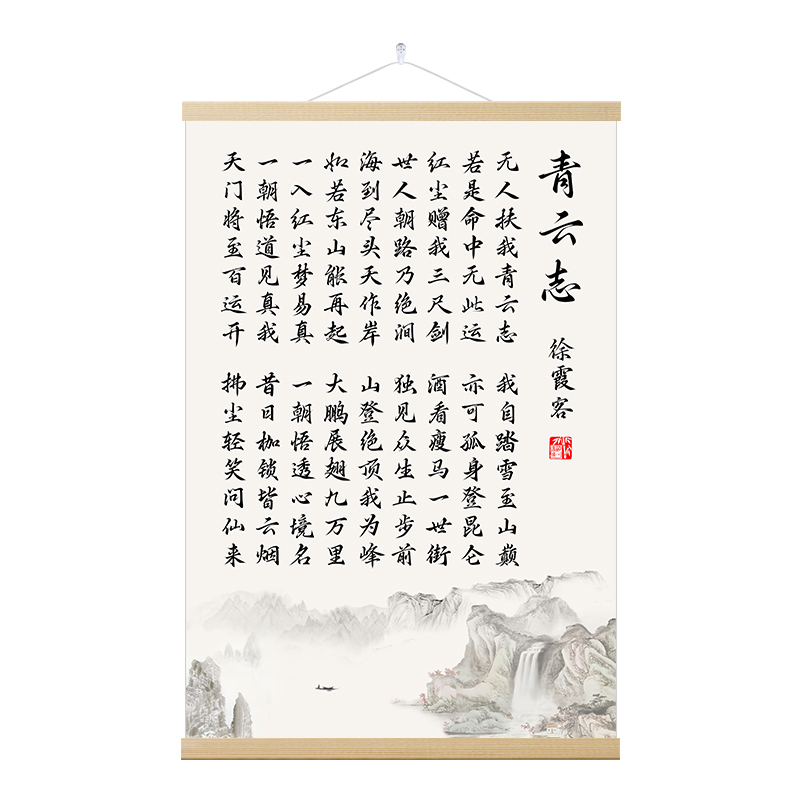 青云志
徐霞客
无人扶我青云志 我自踏雪至山巅
若是命中无此运 亦可孤身登昆仑
红尘赠我三尺剑 酒看瘦马一世街
世人朝路乃绝涧 独见众生止步前
海到尽头天作岸 山登绝顶我为峰
如若东山能再起 大鹏展翅九万里
一入红尘梦易真 一朝悟透心境名
一朝悟道见真我 昔日枷锁皆云烟
天门将至百运开 拂尘轻笑问仙来